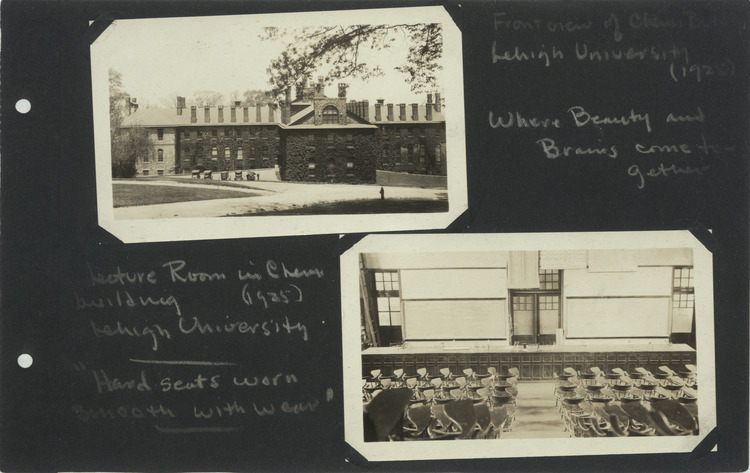 Front view of Chem. Bldg.
Lehigh University
(1925)
Where Beauty and
Brains come to-
gether
Lecture Room in Chem.
building (1925)
Lehigh University
"Hard seats worn
smooth with wear"